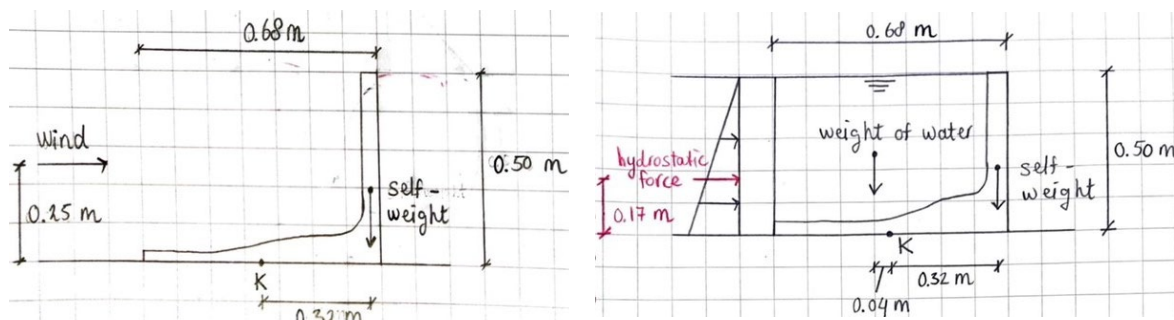 0.68 m
Wind
0.25 m
self-
weight
0.50 m
K
0.32 m
0.68 m
weight of water
hydrostatic
force
0.17 m
self-
weight
0.50 m
K
0.32 m
0.04 m